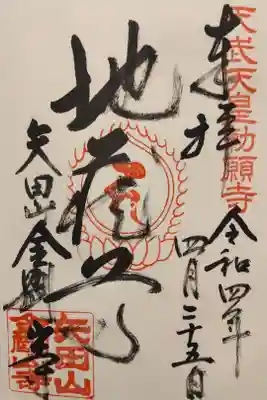 天武天皇勅願寺
奉拝
令和四年
四月二十五日
地蔵尊
矢田山金剛山寺
矢田山
金剛山寺